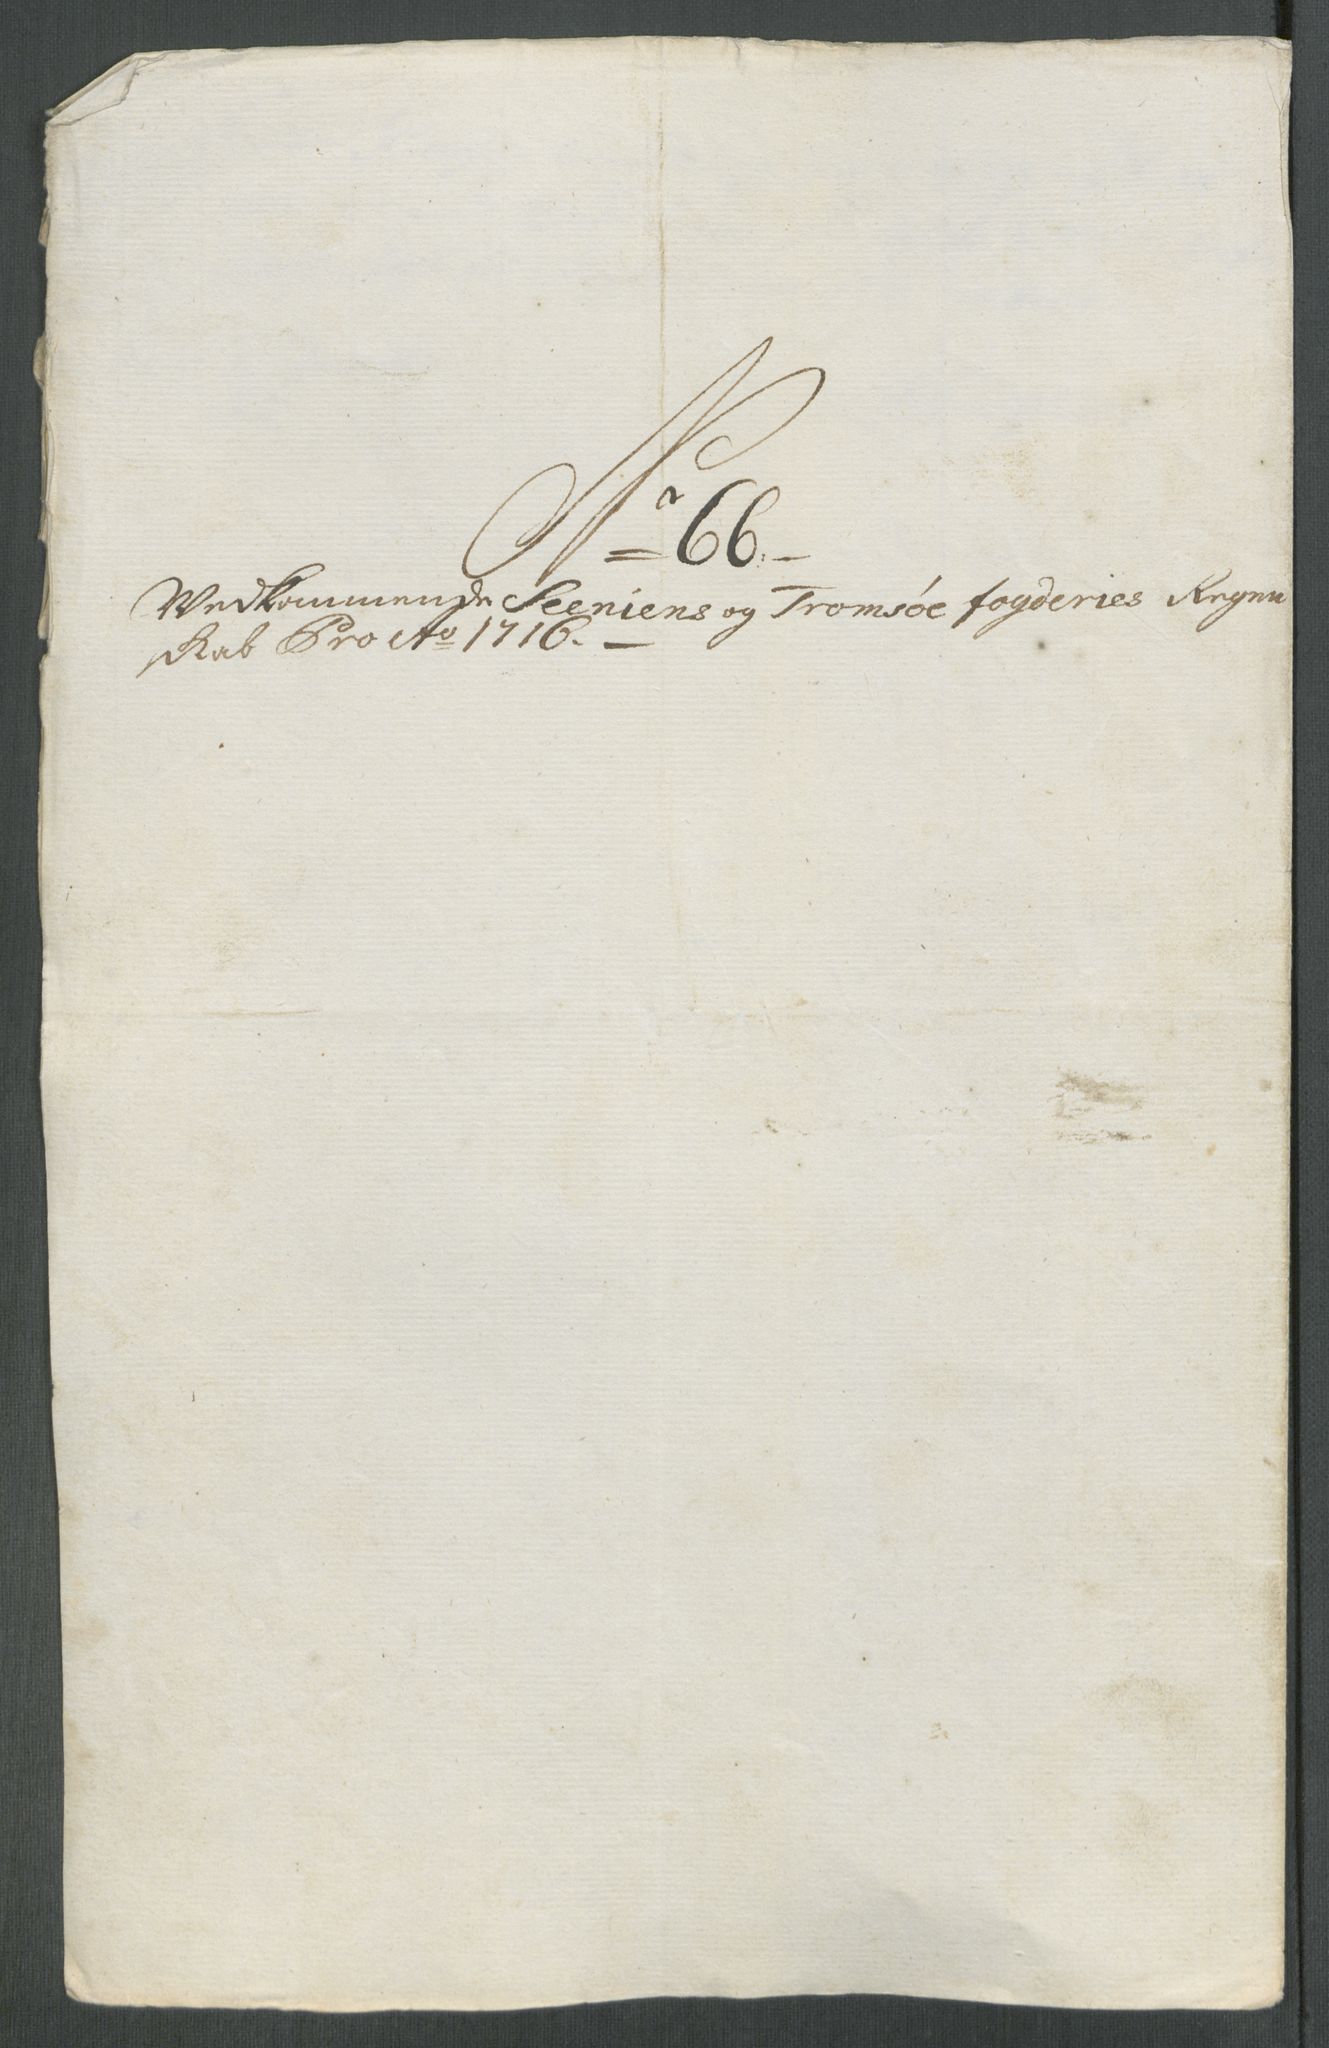 No 66.
Vedkommende Seeniens og Tromsøe fogderies Regn
skab Pro Ao 1716.